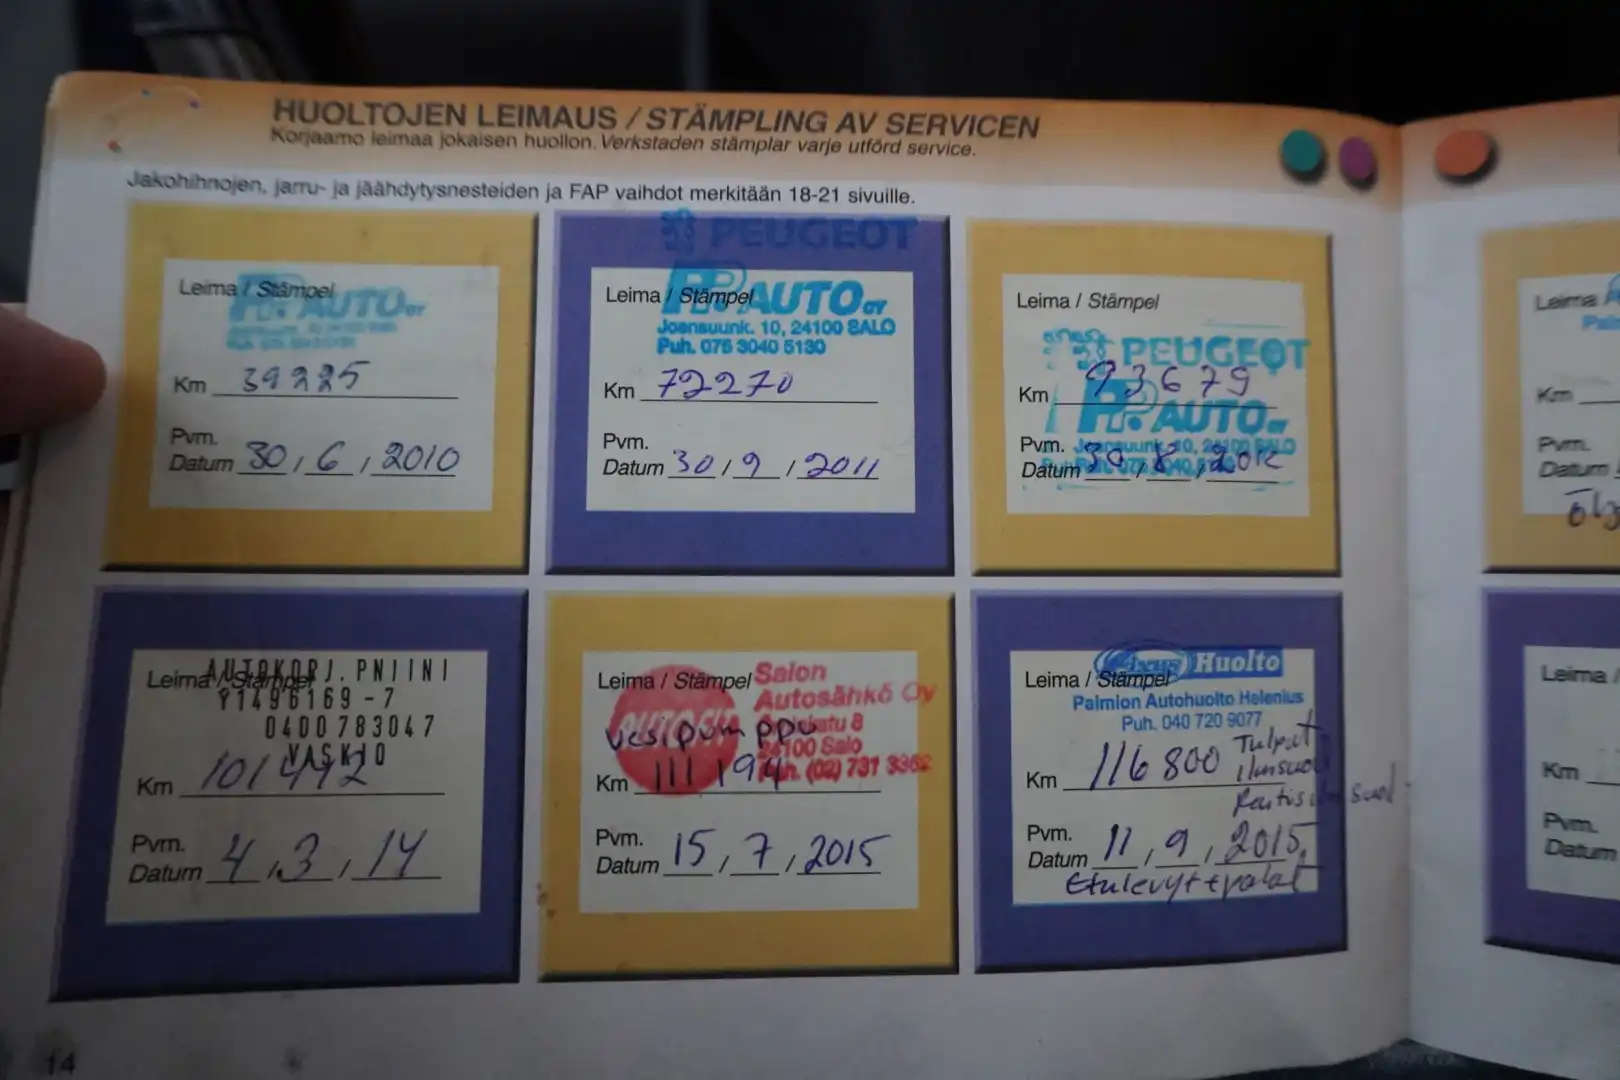 HUOLTOJEN LEIMAUS / STÄMPLING AV SERVICEN
Korjaamo leimaa jokaisen huollon. Verkstaden stämplar varje utförd service.
Jakohihnojen, jarru- ja jäähdytysnesteiden ja FAP vaihdot merkitään 18-21 sivuille.
Leima / Stämpel
AUTO OY
Km 39225
Pvm.
Datum 30 / 6 / 2010
PEUGEOT
Leima / Stämpel
P.P. AUTO OY
Joensuunk. 10, 24100 SALO
Puh. 075 3040 5130
Km 72270
Pvm.
Datum 30 / 9 / 2011
Leima / Stämpel
PEUGEOT
Km 93679
P.P. AUTO OY
Pvm. Joensuunk. 10, 24100 SALO
Datum 30 / 8 / 2012
Leima
Km
Pvm.
Datum
AUTOKORJ. PNIINI
Leima / Stämpel
Y1496169-7
0400783047
VASKIO
Km 101442
Pvm.
Datum 4 / 3 / 14
Leima / Stämpel
Salon
Autosähkö Oy
24100 Salo
Puh. (02) 731 3362
vesipum ppu
Km 111194
Pvm.
Datum 15 / 7 / 2015
Huolto
Leima / Stämpel
Palmion Autohuolto Helenius
Puh. 040 720 9077
Km 116 800 Tulpat
Pvm.
Datum 11 / 9 / 2015
Etulevyt + palat
Leima /
Km
Pvm.
Datum
14